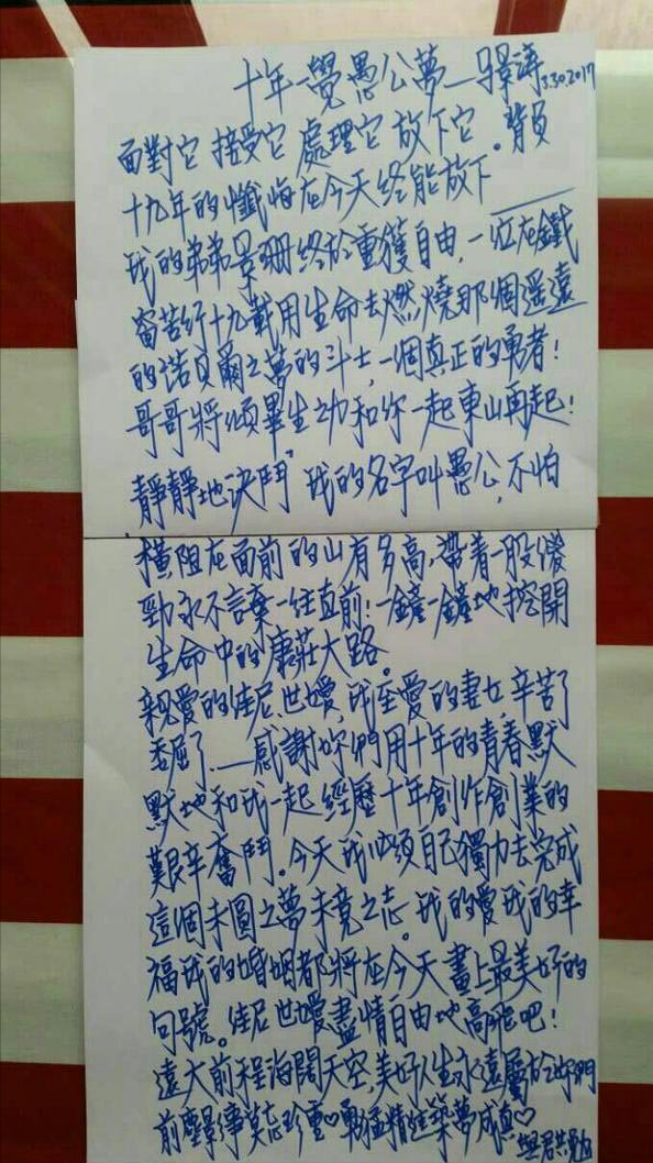 十年一覺愚公夢——景濤 3.30.2017
面對它 接受它 處理它 放下它。背負
十九年的懺悔在今天终能放下——
我的弟弟景珊终於重獲自由,一位在鐵
窗苦行十九載用生命去燃燒那個遥遠
的诺贝爾之夢的斗士,一個真正的勇者!
哥哥將傾畢生之力和你一起東山再起!
靜靜地决鬥"我的名字叫愚公,不怕
横阻在面前的山有多高,帶着一股傻
勁永不言棄一往直前!一鏟一鏟地挖開
生命中的康莊大路。
親愛的佳尼、世嬡,我至愛的妻女,辛苦了
委屈了——感謝妳們用十年的青春默
默地和我一起經歷十年創作創業的
艱辛奮鬥。今天我必須自己獨力去完成
這個未圓之夢未竟之志。我的愛我的幸
福我的婚姻都將在今天畫上最美好的
句號。佳尼 世嬡盡情自由地高飛吧!
遠大前程海闊天空,美好人生永遠屬於妳們
前塵緣事莫忘珍重♡勇猛精進築夢成真♡
與君共勉